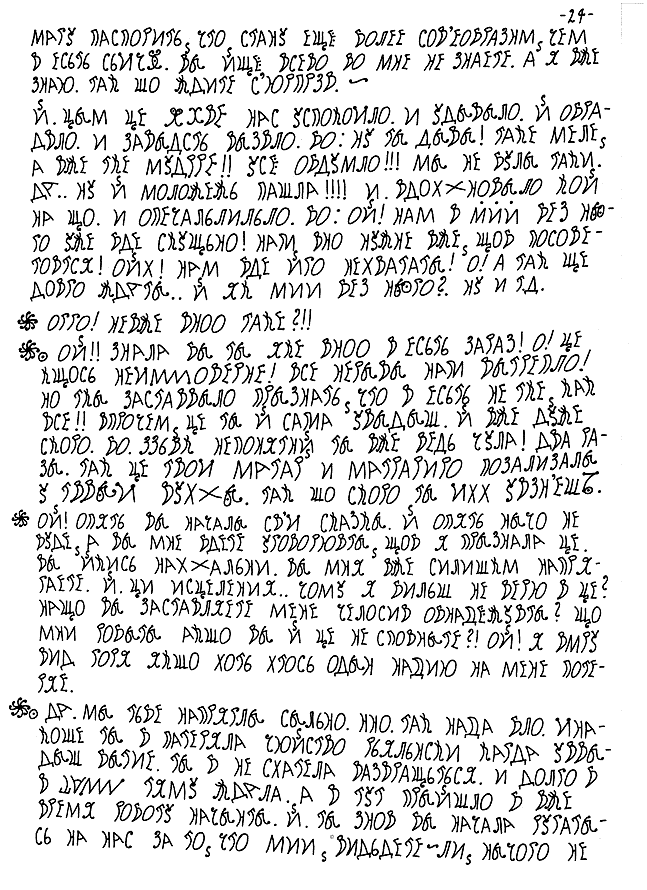 -24-
МАТУ ПАСПОРИТЬ, ЧТО, СТАНУ ЕЩЕ БОЛЕЕ СОВ'ЕОБРАЗИМ, ЧЕМ
В ЕСЬТЬ ВЫ ЙИЩЕ ВСЕВО ВО МНЕ НЕ ЗНАЕТЕ. А Я ВЖЕ
ЗНАЮ. ТАК ШО ЖДИТЕ С'ЮРПРЗВ.
Й. ЦЫМ ЦЕ НАС УСПОКОИЛО. И УДЫВЫЛО. Й ОБРА-
ДВЛО. И ВО: НУ ТЫ ДЫВЫ! ТАКЕ МЕЛЕ,
А ВЖЕ ТКЕ МУДРРЕ!! УСЕ ОБДУМЛО!!! МЫ НЕ БУЛЫ ТАКИ.
ДР.. НУ Й МОЛОЖЕЖЬ ПАШЛА!!!! И. ВДОХНОВЫЛО КОЙ
НА ЩО. И ОПЕЧАЛЬЛИЛЬЛО. ВО: ОЙ! НАМ В МИЙ БЕЗ НЬО-
ГО УЖЕ БДЕ СКУЩЬНО! НАТИ, ВНО НУЖНЕ ВЖЕ, ЩОВ ПОСОВЕ-
ТОВТСЯ! ОЙХ! НАМ БДЕ ЙГО НЕХВАТАТЫ! О! А ТАК ЩЕ
ДОВГО ЖДАТЫ.. Й ЯК МИИ БЕЗ НЬОГО?. НУ И ТД.
ОГГО! НЕВЖЕ ВНОО ТАКЕ?!!
ОЙ!! ЗНАЛА БЫ ТЫ ЯКЕ ВНОО В ЕСЬТЬ ЗАРАЗ! О! ЦЕ
КЩОСЬ НЕИММОВЕРНЕ! ВСЕ НЕРЬВЫ НАТИ ВЫТРЕПЛО!
НО ТКЫ ЗАСТАВВЛО ПРЫЗНАТЬ, ЧТО В ЕСЬТЬ НЕ ТКЕ, КАК
ВСЕ!! ВПРОЧЕМ, ЦЕ ТЫ Й САМА УВЫДЫШ. Й ВЖЕ ДУЖЕ
СКОРО. ВО. НЕПОНЯТНИЙ ТЫ ВЖЕ ВЕДЬ ЧУЛА! ДВА РА-
ЗЫ. ТАК ЦЕ ТВОИ МАТАР И МАТРАГИРО ПОЗАЛИЗАЛЫ
У ТВВЫЙ ВУХЫ. ТАК ШО СКОРО ТЫ ИХХ УВЗНЕШ.
ОЙ! ОПЯТЬ ВЫ НАЧАЛА СВ'И СКАЗКЫ. Й ОПЯТЬ НЫЧО НЕ
БУДЕ, А ВЫ МНЕ БДЕТЕ УГОВОРЮВТЫ, ЩОВ Я ПРЫЗНАЛА ЦЕ.
ВЫ ЙКИСЬ НАХАЛЬНИ. ВЫ МНЯ ВЖЕ СИЛИШКМ НАПРЯ-
ГАЕТЕ. Й. ЦИ ИСЦЕЛЕНИЯ.. ЧОМУ Я БИЛЬШ НЕ ВЕРЮ В ЦЕ?
НАЩО ВЫ ЗАСТАВЛЯЕТЕ МЕНЕ ЧЕЛОСИВ ОБНАДЕЖУВТЫ? ЩО
МНИ РОБЫТЫ АКШО ВЫ Й ЦЕ НЕ СПОВНЫТЕ?! ОЙ! Я ВМРУ
ВИД ГОРЯ ЯКШО ХОТЬ ХТОСЬ ОДЫН НАДИЮ НА МЕНЕ ПОТЕ-
РЯЕ.
ДР. МЫ ТЬБЕ НАПРЯГЛЫ СЫЛЬНО. НЮ. ТАК НАДА БЛО. ИНА-
КОШЕ ТЫ В ПАТЕРЯЛА ЧЮЙСТВО РЬЯЛЬНСКИ КАГДА УВВЫ-
ДЫШ ВАГИЕ. ТЫ В НЕ СХАТЕЛА ВАЗВРАЩЬТЬСЯ. И ДОЛГО В
В ТАМУ ЖДАЛА., А В ТУТ ПРЫЙШЛО В ВЖЕ
ВРЕМЯ РОБОТУ НАЧЫНТЫ. Й. ТЫ ЗНОВ ВЫ НАЧАЛА РУГАТЫ-
СЬ НА НАС ЗА ТО, ЧТО МИИ, ВИДЬДЕТЕ-ЛИ, НЫЧОГО НЕ